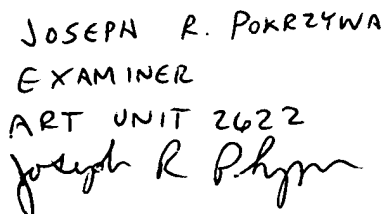 JOSEPH R. POKRZYWA
EXAMINER
ART UNIT 2622
Joseph R